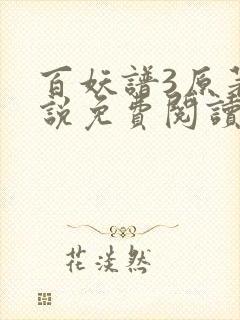 百妖譜3原著
說免費閱讀
花淡然